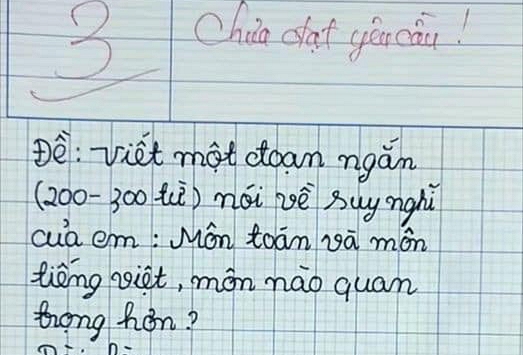 3
Chưa đạt yêu cầu!
Đề: Viết một đoạn ngắn
(200-300 từ) nói về suy nghĩ
của em: Môn toán và môn
tiếng việt, môn nào quan
trọng hơn?